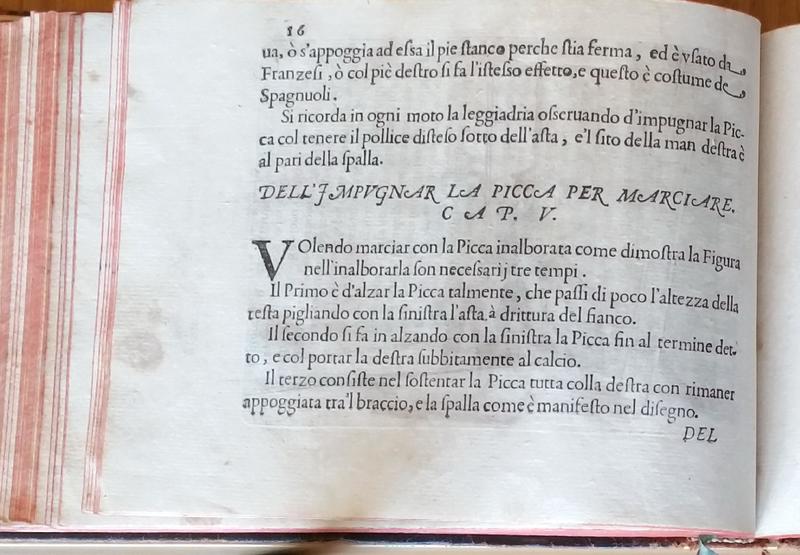 16
ua, ò s'appoggia ad eſsa il pie ſtanco perche ſtia ferma, ed è vſato da
Franzeſi, ò col piè deſtro ſi fa l'iſteſso effetto, e queſto è coſtume de
Spagnuoli.
Si ricorda in ogni moto la leggiadria oſseruando d'impugnar la Pic-
ca col tenere il pollice diſteſo ſotto dell'aſta, e'l ſito della man deſtra è
al pari della ſpalla.
DELL'IMPVGNAR LA PICCA PER MARCIARE.
CAP. V.
VOlendo marciar con la Picca inalborata come dimoſtra la Figura
nell'inalborarla ſon neceſsarij tre tempi.
Il Primo è d'alzar la Picca talmente, che paſſi di poco l'altezza della
teſta pigliando con la ſiniſtra l'aſta à drittura del fianco.
Il ſecondo ſi fa in alzando con la ſiniſtra la Picca fin al termine det-
to, e col portar la deſtra ſubbitamente al calcio.
Il terzo conſiſte nel ſoſtentar la Picca tutta colla deſtra con rimaner
appoggiata tra'l braccio, e la ſpalla come è manifeſto nel diſegno.
DEL